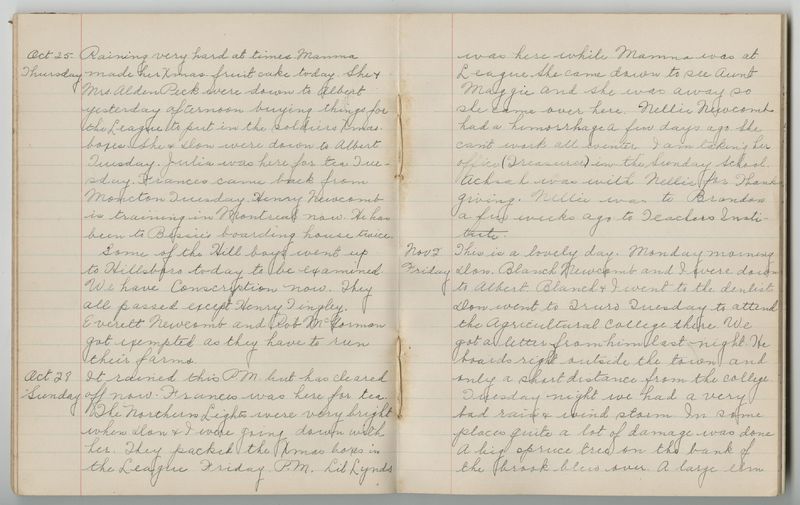 Oct 25. Raining very hard at times Mamma
Thursday made her Xmas fruit cake today. She &
Mrs Alden Peck were down to Albert
yesterday afternoon buying things for
the League to put in the soldiers Xmas
boxes. She & Don were down to Albert
Tuesday. Julia was here for tea Tue-
sday. Frances came back from
Moncton Tuesday. Henry Newcomb
is training in Montreal now. He has
been to Bessie's boarding house twice.
Some of the Hill boys went up
to Hillsboro today to be examined
We have Conscription now. They
all passed except Henry Tingley.
Everett Newcomb and Rob McGorman
got exempted as they have to run
their farms.
Oct 28 It rained this P.M. but has cleared
Sunday off now. Frances was here for tea.
The Northern Lights were very bright
when Don & I were going down with
her. They packed the Xmas boxes in
the League Friday P.M. Lib Lynds
was here while Mamma was at
League She came down to see Aunt
Maggie and she was away so
she came over here. Nellie Newcomb
had a hemorrhage a few days ago She
can't work all winter I am taking her
office (Treasurer) in the Sunday School.
Achsah was with Nellie for Thanks
giving. Nellie was to Brandon
a few weeks ago to Teachers Insti-
tute.
Nov 2 This is a lovely day. Monday morning
Friday Don, Blanch Newcomb and I were down
to Albert. Blanch & I went to the dentist
Don went to Truro Tuesday to attend
the Agricultural College there. We
got a letter from him last night. He
boards right outside the town and
only a short distance from the college.
Tuesday night we had a very
bad rain & wind storm. In some
places quite a lot of damage was done
A big spruce tree on the bank of
the brook blew over. A large elm